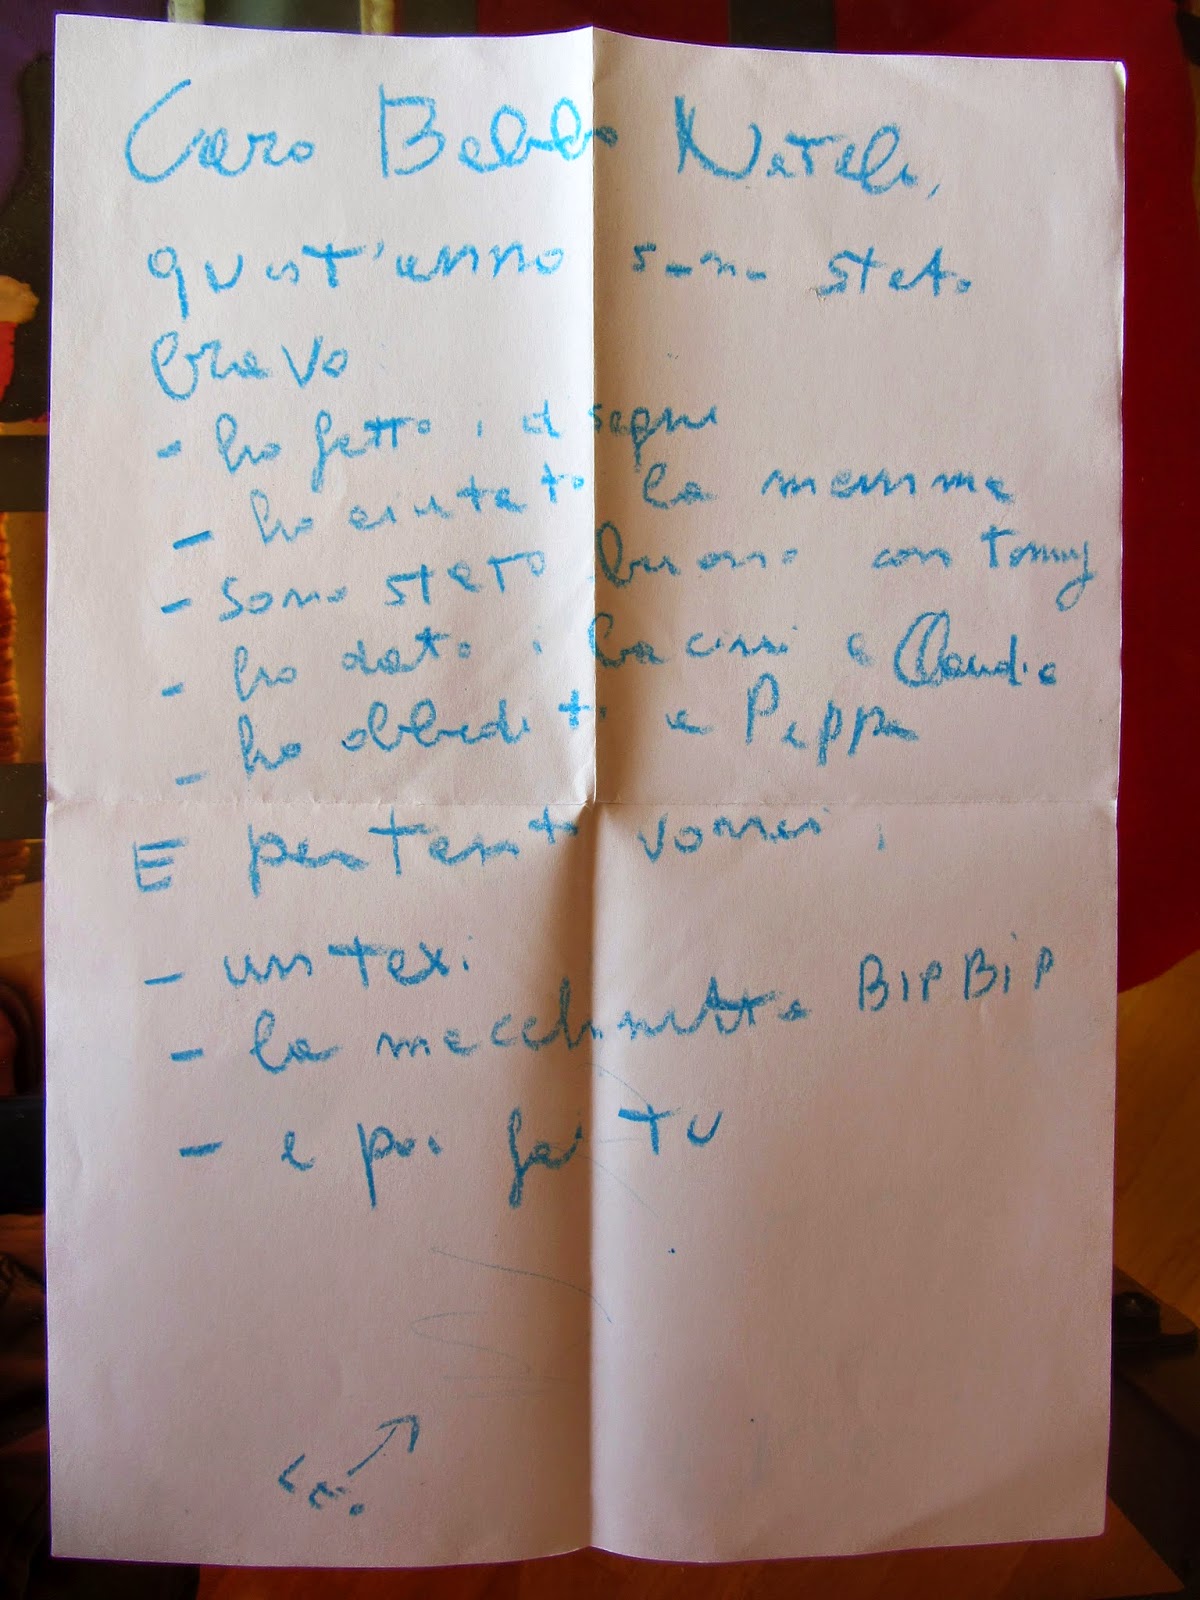 Caro Babbo Natale,
quest'anno sono stato
bravo
- ho fatto i disegni
- ho aiutato la mamma
- sono stato buono con Tommy
- ho dato i bacini a Claudia
- ho obbedito a Peppe
E pertanto vorrei,
- un taxi
- la macchinetta BIP BIP
- e poi fai tu